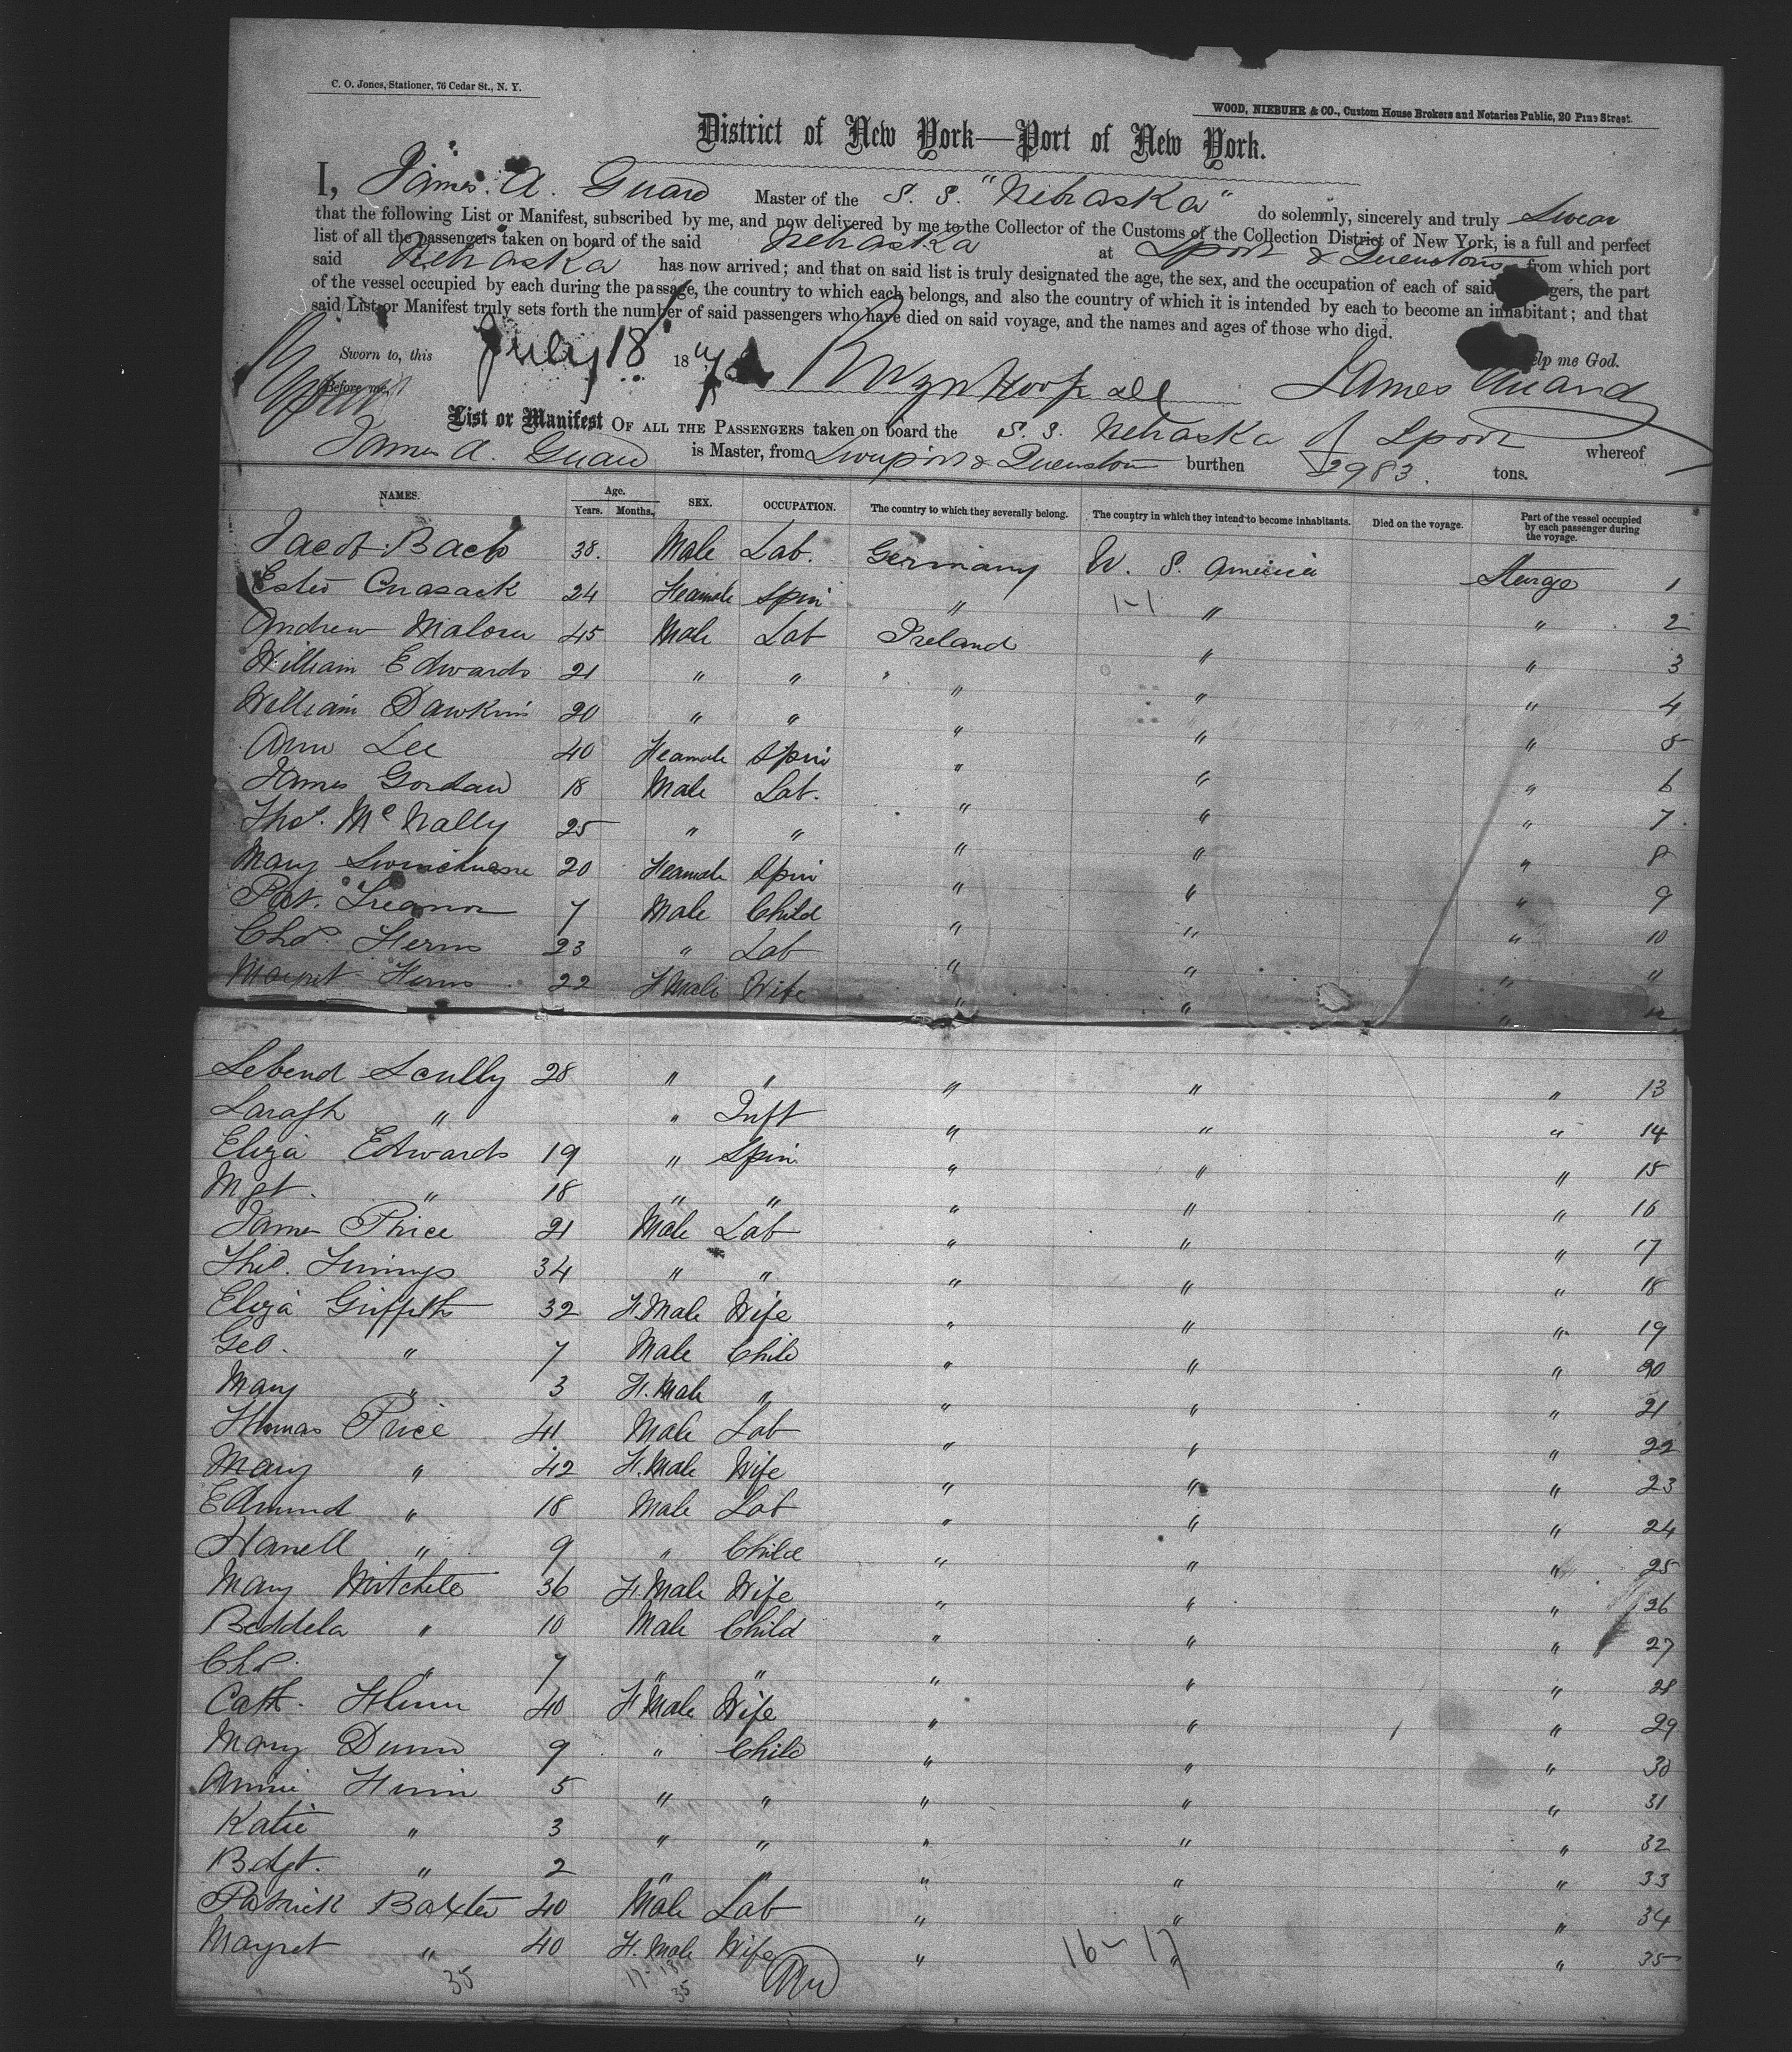 C. O. Jones, Stationer, 76 Cedar St., N. Y.
WOOD, NIEBUHR & CO., Custom House Brokers and Notaries Public, 20 Pine Street.
District of New York—Port of New York.
I, James A. Guard Master of the S. S. "Nebraska" do solemnly, sincerely and truly Swear
that the following List or Manifest, subscribed by me, and now delivered by me to the Collector of the Customs of the Collection District of New York, is a full and perfect
list of all the passengers taken on board of the said Nebraska at Lpool & Queenstown from which port
said Nebraska has now arrived; and that on said list is truly designated the age, the sex, and the occupation of each of said passengers, the part
of the vessel occupied by each during the passage, the country to which each belongs, and also the country of which it is intended by each to become an inhabitant; and that
said List or Manifest truly sets forth the number of said passengers who have died on said voyage, and the names and ages of those who died.
Sworn to, this July 18 18 help me God.
Before me, James Guard
List or Manifest OF ALL THE PASSENGERS taken on board the S. S. Nebraska of Lpool whereof
James A. Guard is Master, from Liverpool & Queenstown burthen 2983 tons.
NAMES. Age. Years. Months. SEX. OCCUPATION. The country to which they severally belong. The country in which they intend to become inhabitants. Died on the voyage. Part of the vessel occupied by each passenger during the voyage.
Jacob Back 38. Male Lab. Germany U. S. America Steerage 1
24 Feamale Spin " 1-1 " " 2
Andrew 45 Male Lab Ireland " " 3
William Edwards 21 " " " " " 4
William Dawkins 20 " " " " " 5
Ann Lee 40 Feamale Spin " " " 6
James Gordan 18 Male Lab. " " " 7
Thos. McNally 25 " " " " " 8
Mary 20 Feamale Spin " " " 9
Pat. 7 Male Child " " " 10
Chas. Herns 23 " Lab " " " 11
Margret Herns 22 F Male Wife " " " 12
Scully 28 " " " " " 13
" " Inft " " " 14
Eliza Edwards 19 " Spin " " " 15
Mgt. " 18 " " " " " 16
James Price 21 Male Lab " " " 17
Thos. 34 " " " " " 18
Eliza Griffiths 32 F. Male Wife " " " 19
Geo. " 7 Male Child " " " 20
Mary " 3 F. Male " " " " 21
Thomas Price 41 Male Lab " " " 22
Mary " 42 F. Male Wife " " " 23
Edmund " 18 Male Lab " " " 24
" 9 " Child " " " 25
Mary 36 F. Male Wife " " " 26
Beddela " 10 Male Child " " " 27
Chs. " 7 " " " " " 28
Cath. 40 F Male Wife " " " 29
Mary Dunn 9 " Child " " " 30
Annie 5 " " " " " 31
Katie " 3 " " " " " 32
Bdgt. " 2 " " " " " 33
Patrick Baxter 40 Male Lab " " " 34
Margret " 40 F. Male Wife " 16 - 17 " " 35
35 17-18 35